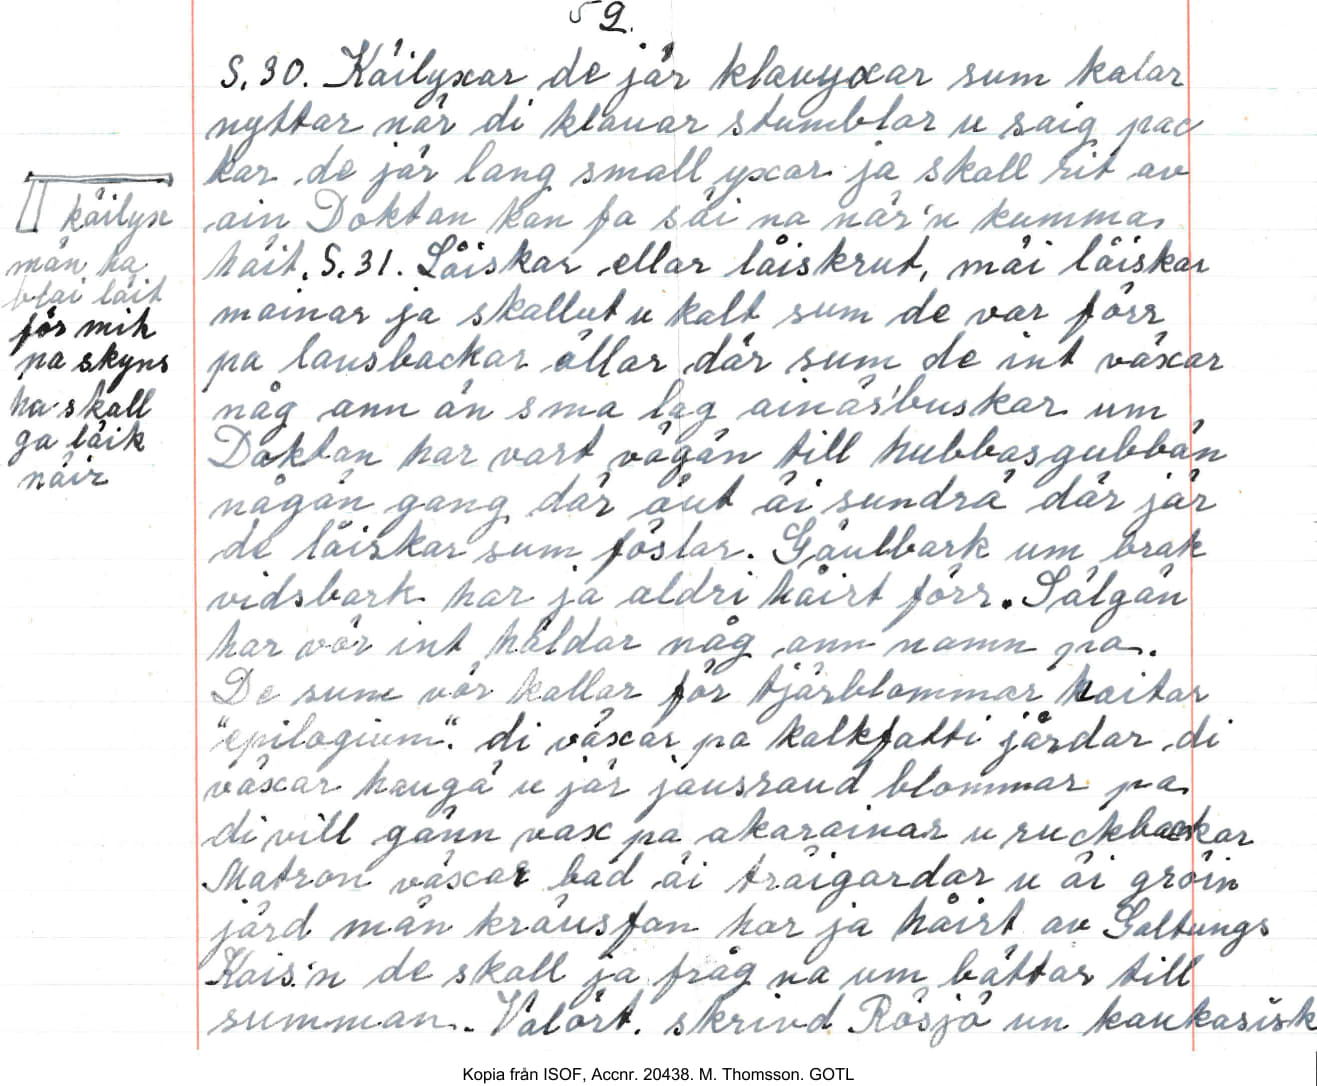 59.
S. 30. Käilyxar de jär klauyxar sum kalar
nyttar när di klauar stumblar u saig pac
kar de jär lang small yxar ja skall rit av
ain Doktan kan fa säi na när'n kummar
häit. S. 31. Låiskar ellar låiskrut, mäi låiskar
mainar ja skallut u kalt sum de var förr
pa lausbackar ällar där sum de int växar
någ ann än sma lag ainäsbuskar um
Doktan har vart vägän till hubbasgubbän
någän gang där äut äi sundrä där jär
de låiskar sum föslar. Gäulbark um brak
vidsbark har ja aldri håirt förr. Sälgän
har vör int håldar någ ann namn pa.
De sum vör kallar för tjärblommar haitar
"epilogium". di växar pa kalkfatti järdar di
växar haugä u jär jausraud blommar pa
di vill gänn vax pa akarainar u ruckbackar
Matron växar bad äi träigardar u äi gröin
järd män kräusfan har ja håirt av Galtungs
Kais'n de skall ja fråg na um bättar till
summan. Valört. skrivd Rösjö un kaukasisk
käilyx
män ha
blai läit
för mik
pa skyns
ha skall
ga läik
näir
Kopia från ISOF, Accnr. 20438. M. Thomsson. GOTL